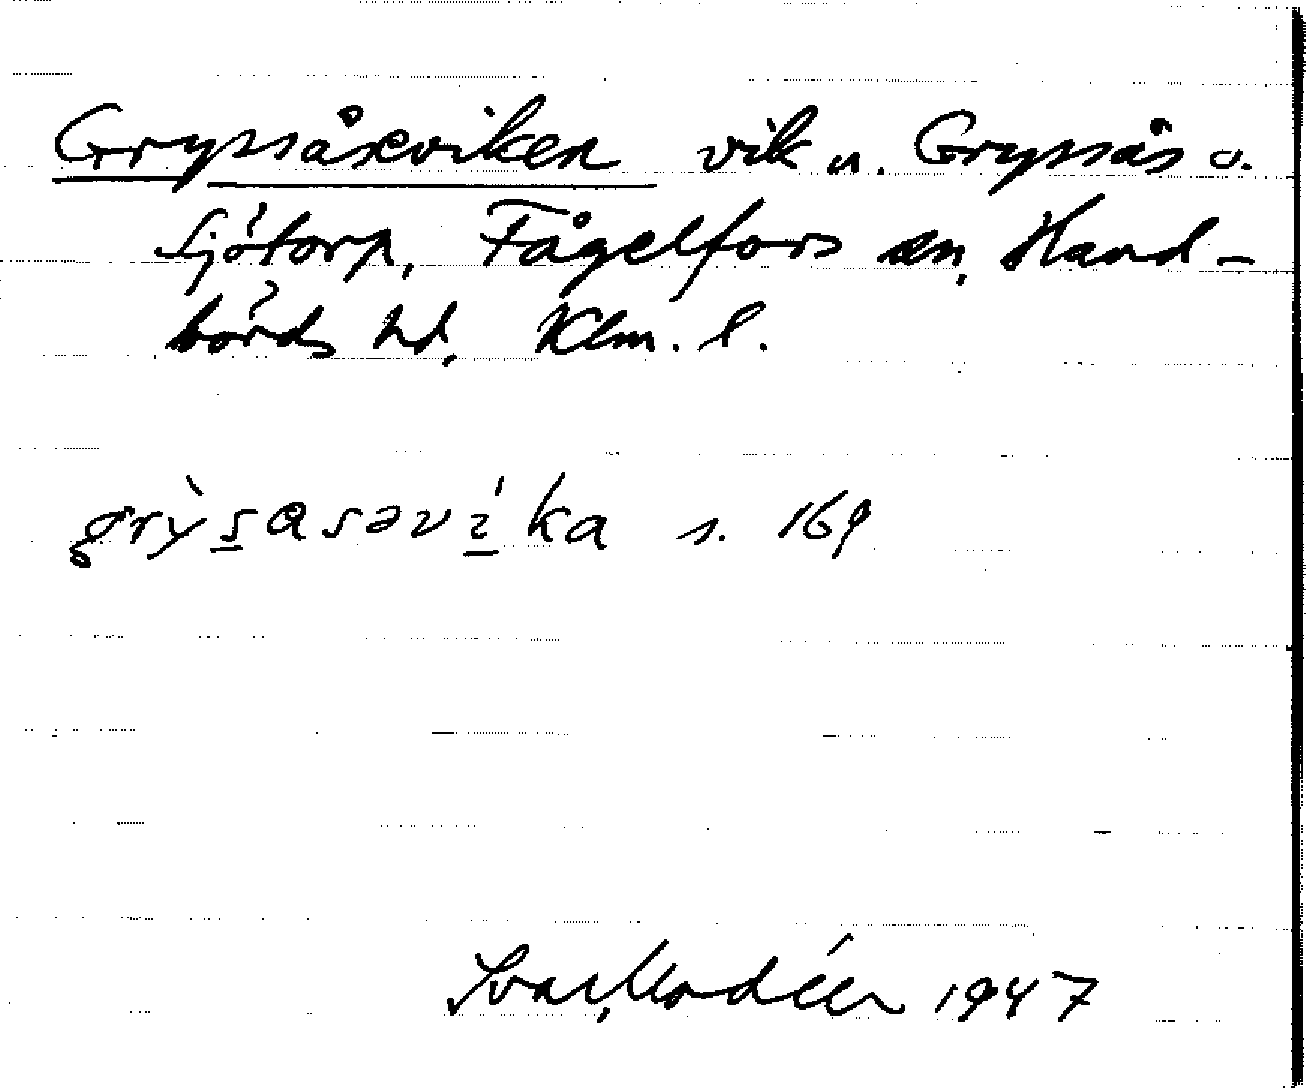 Gryssåseviken vik u. Gryssås o.
Sjötorp, Fågelfors sn, Hand-
börds hd, Klm. l.
grỳsasəvíka s. 169
Ivar Modéer 1947